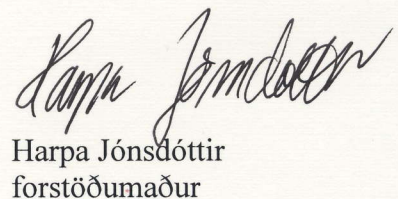 Harpa Jónsdóttir
Harpa Jónsdóttir
forstöðumaður